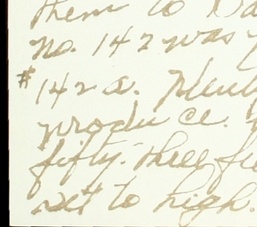 them to
no. 142 was
#142 a.
produce.
fifty-three
set to high.